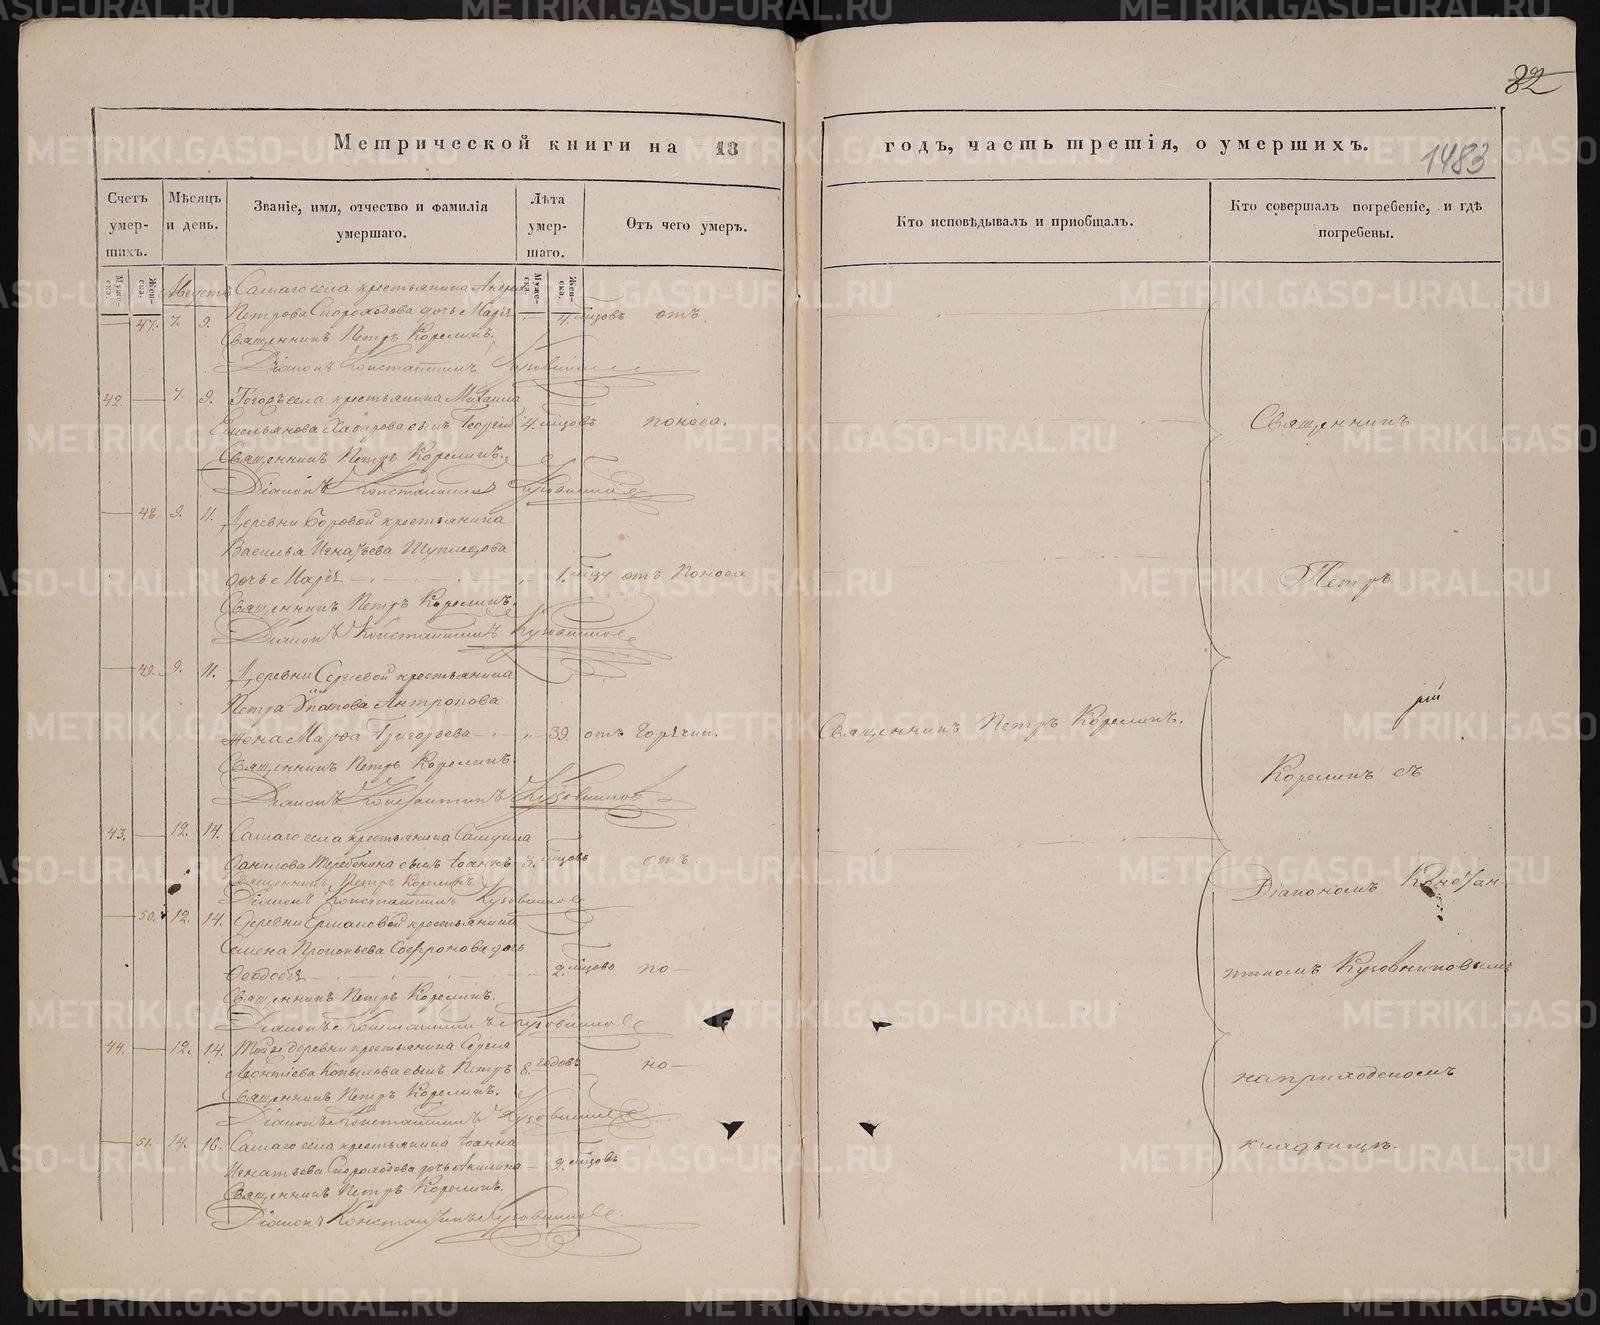 82
Метрической книги на 18
годъ, часть третія, о умершихъ.
1483
Счетъ умер-шихъ.
Мѣсяцъ и день.
Званіе, имя, отчество и фамилія умершаго.
Лѣта умер-шаго.
Отъ чего умеръ.
Кто исповѣдывалъ и приобщалъ.
Кто совершалъ погребеніе, и гдѣ погребены.
Муже-ска.
Жен-ска.
Муже-ска.
Жен-ска.
Августъ
Самаго села крестьянина Андрея
47. 7. 9. Петрова Скороходова дочь Марія 4. мѣсяцовъ отъ
Священникъ Петръ Корелинъ.
Діаконъ Константинъ Кузовниковъ
42. 7. 9. Тогожъ села крестьянина Михаила
Емельянова Хабарова сынъ Георгій 4. мѣсяцовъ поноса.
Священникъ Петръ Корелинъ.
Діаконъ Константинъ Кузовниковъ
48. 9. 11. Деревни Боровой крестьянина
Василья Игнатьева
дочь Марія 1. отъ поноса
Священникъ Петръ Корелинъ.
Діаконъ Константинъ Кузовниковъ
49. 9. 11. Деревни Сергѣевой крестьянина
Петра Антропова
жена Марѳа Григорьева 39. отъ горячки.
Священникъ Петръ Корелинъ
Діаконъ Константинъ Кузовниковъ
Священникъ Петръ Корелинъ.
43. 12. 14. Самаго села крестьянина Самуила
Данилова Теребенина сынъ Іоаннъ 3. мѣсяцовъ отъ
Священникъ Петръ Корелинъ
Діаконъ Константинъ Кузовниковъ
50. 12. 14. Деревни Ермаковой крестьянина
Семена Прокопьева Софронова дочь
Ѳеодосія 2. мѣсяцовъ по-
Священникъ Петръ Корелинъ.
Діаконъ Константинъ Кузовниковъ
44. 12. 14. Той же деревни крестьянина Сергѣя
Леонтіева Копылова сынъ Петръ 8. годовъ но-
Священникъ Петръ Корелинъ.
Діаконъ Константинъ Кузовниковъ
51. 14. 16. Самаго села крестьянина Іоанна
Игнатьева Скороходова дочь Акилина 2. мѣсяцовъ
Священникъ Петръ Корелинъ.
Діаконъ Константинъ Кузовниковъ
Священникъ
Петръ
Корелинъ съ
Діакономъ Констан-
тиномъ Кузовниковымъ
на приходскомъ
кладбищѣ.
METRIKI.GASO-URAL.RU